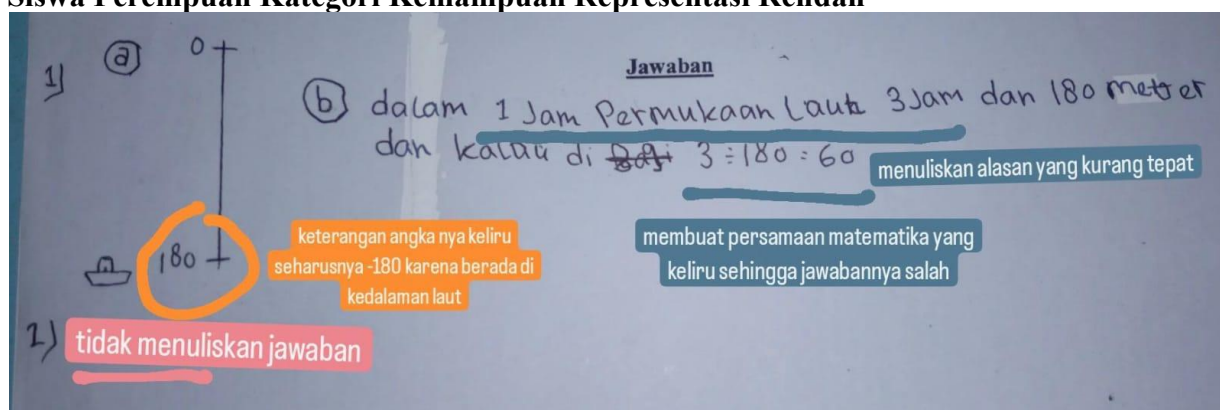 Siswa Perempuan Kategori Kemampuan Representasi Rendah
1)
a
0
180
Jawaban
b dalam 1 Jam Permukaan Laut 3 Jam dan 180
dan kalau di 3 ÷ 180 = 60
menuliskan alasan yang kurang tepat
keterangan angka nya keliru
seharusnya -180 karena berada di
kedalaman laut
membuat persamaan matematika yang
keliru sehingga jawabannya salah
2) tidak menuliskan jawaban